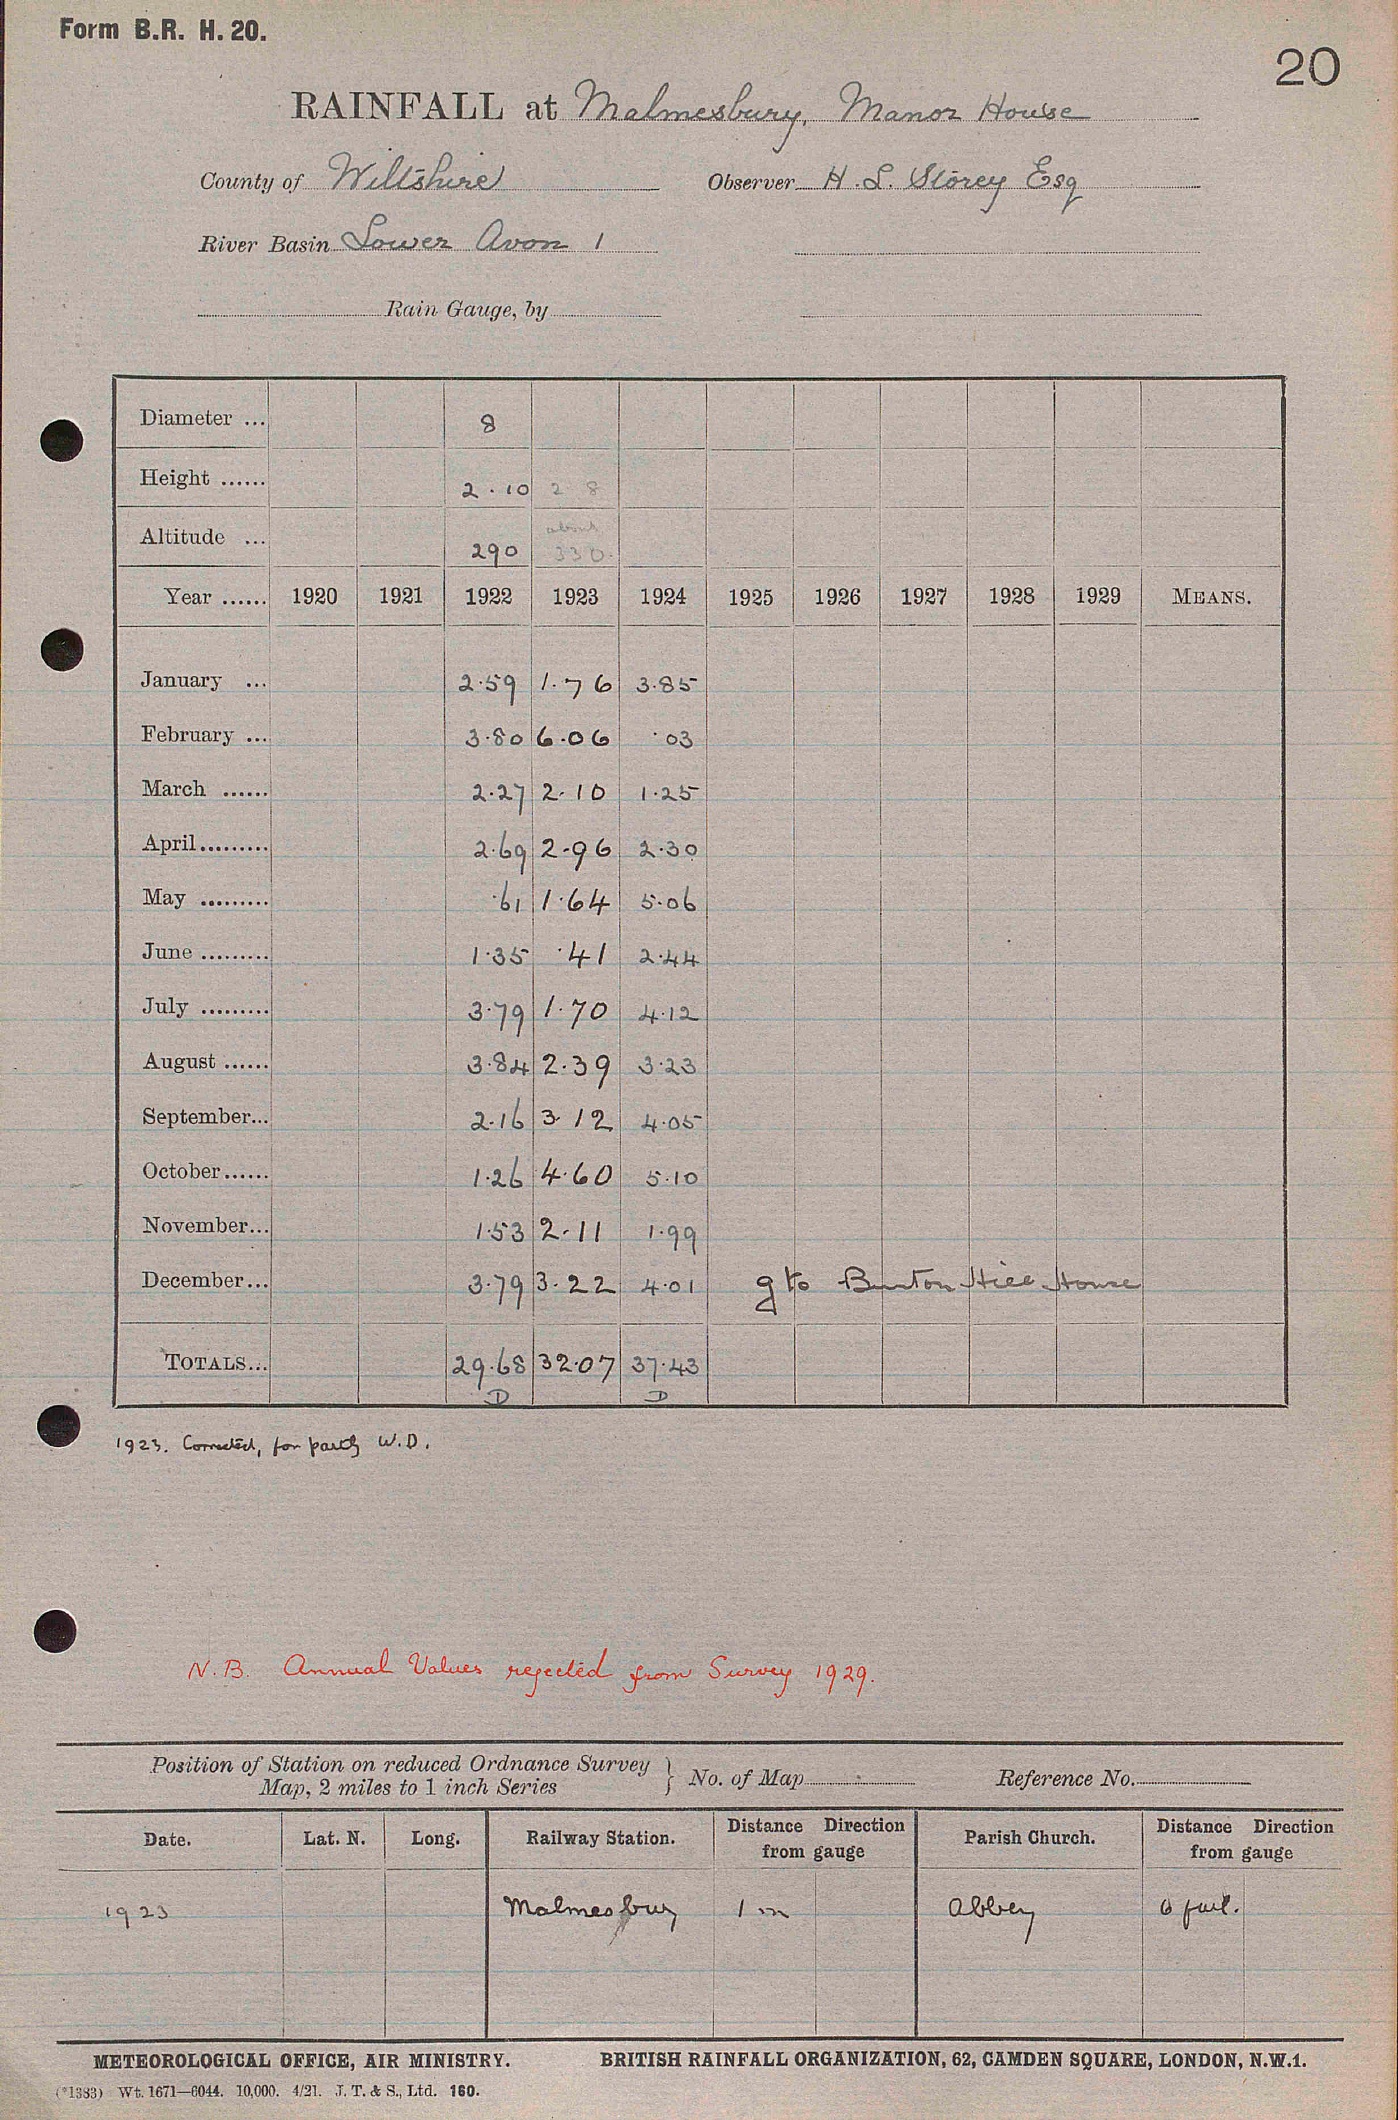 Form B.R. H. 20.
20
RAINFALL at Malmesbury, Manor House
County of Wiltshire Observer H. L. Storey Esq
River Basin Lower Avon 1
Rain Gauge, by
Diameter ... 8
Height ...... 2·10 2 8
Altitude ... 290 about 330.
Year ...... 1920 1921 1922 1923 1924 1925 1926 1927 1928 1929 MEANS.
January ... 2·59 1·76 3·85
February ... 3·80 6·06 ·03
March ...... 2·27 2·10 1·25
April......... 2·69 2·96 2·30
May ......... ·61 1·64 5·06
June ......... 1·35 ·41 2·44
July ......... 3·79 1·70 4·12
August ...... 3·84 2·39 3·23
September... 2·16 3·12 4·05
October...... 1·26 4·60 5·10
November... 1·53 2·11 1·99
December... 3·79 3·22 4·01 g to Burton Hill House
TOTALS... 29·68 32·07 37·43
D D
1923. Corrected, for partly W.D.
N.B. Annual Values rejected from Survey 1929.
Position of Station on reduced Ordnance Survey Map, 2 miles to 1 inch Series } No. of Map Reference No.
Date. Lat. N. Long. Railway Station. Distance Direction from gauge Parish Church. Distance Direction from gauge
1923 Malmesbury 1 m Abbey 6 furl.
METEOROLOGICAL OFFICE, AIR MINISTRY. BRITISH RAINFALL ORGANIZATION, 62, CAMDEN SQUARE, LONDON, N.W.1.
(*1383) Wt. 1671—6044. 10,000. 4/21. J. T. & S., Ltd. 160.